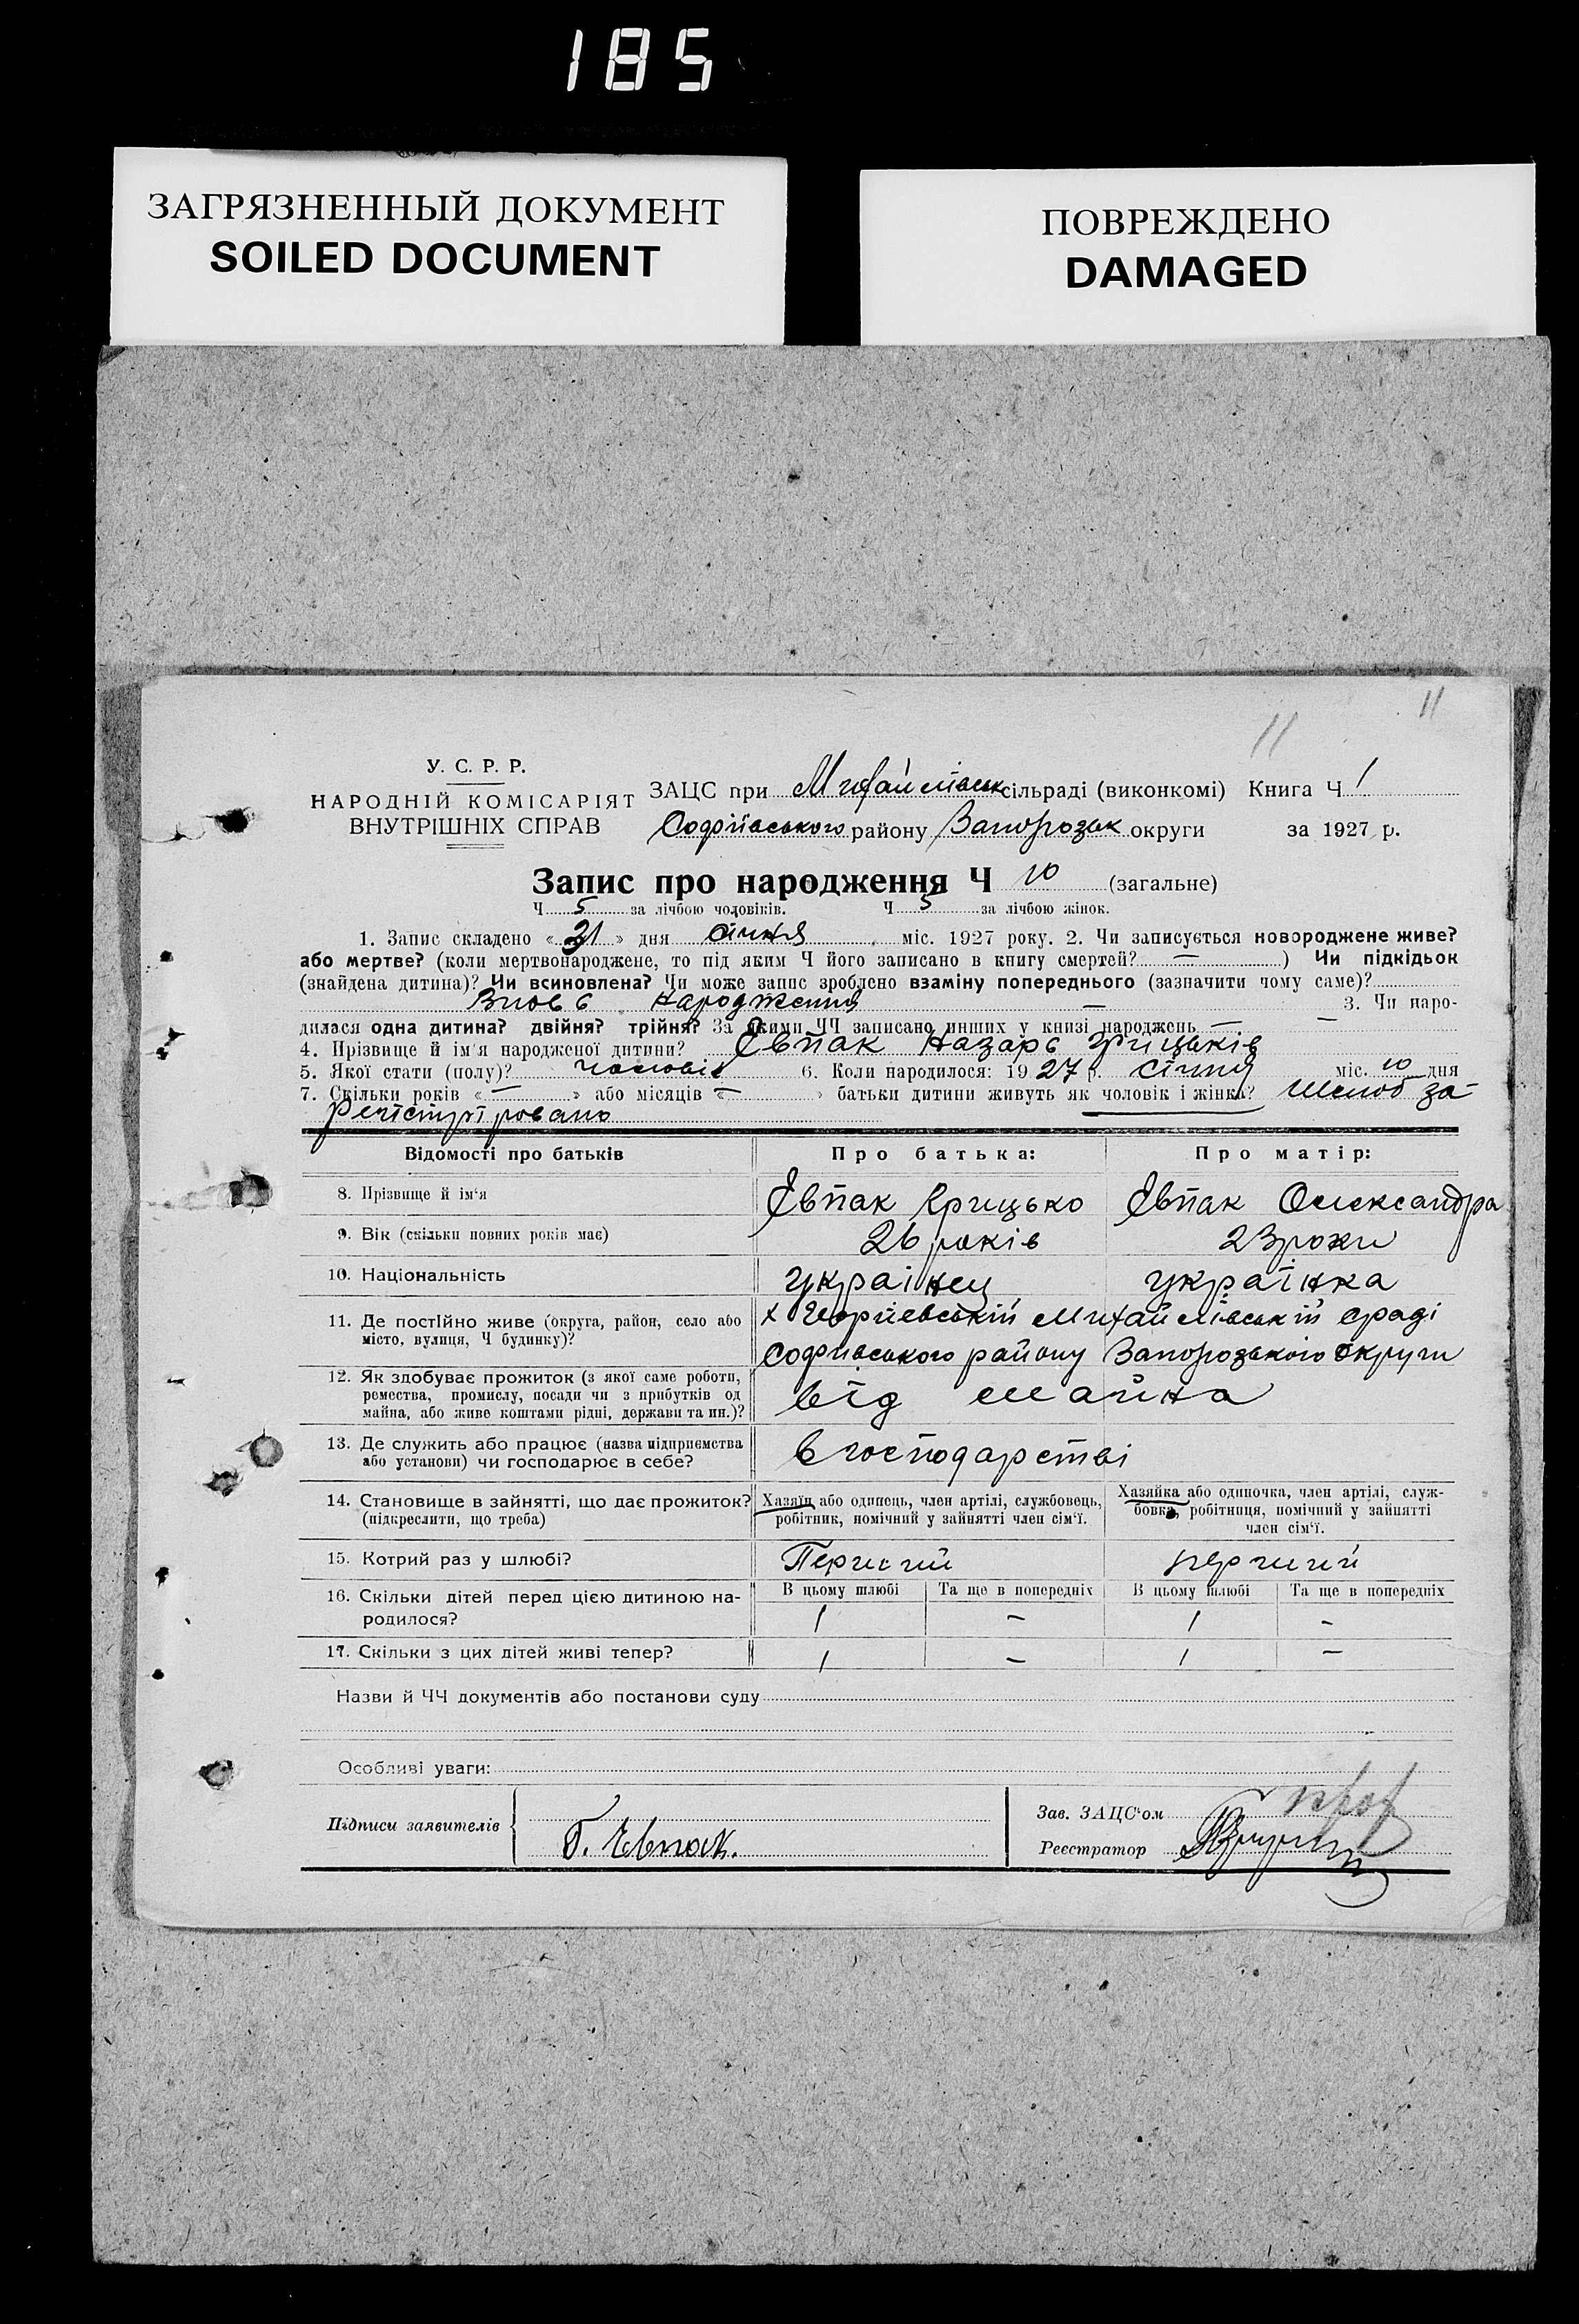 185
ЗАГРЯЗНЕННЫЙ ДОКУМЕНТ
SOILED DOCUMENT
ПОВРЕЖДЕНО
DAMAGED
11 11
У. С. Р. Р.
НАРОДНІЙ КОМІСАРІЯТ
ВНУТРІШНІХ СПРАВ
ЗАЦС при Михайлівськ сільраді (виконкомі) Книга Ч 1
Софіївського району Запорозьк округи за 1927 р.
Запис про народження Ч 10 (загальне)
Ч 5 за лічбою чоловіків. Ч 5 за лічбою жінок.
1. Запис складено « 31 » дня січня міс. 1927 року. 2. Чи записується новороджене живе?
або мертве? (коли мертвонароджене, то під яким Ч його записано в книгу смертей? — ) Чи підкідьок
(знайдена дитина)? Чи всиновлена? Чи може запис зроблено взаміну попереднього (зазначити чому саме)?
Вновь народження — 3. Чи наро-
дилася одна дитина? двійня? трійня? За якими ЧЧ записано инших у книзі народжень — —
4. Прізвище й ім'я народженої дитини? Євпак Назарь Грицьків
5. Якої стати (полу)? чоловік 6. Коли народилося: 1927 р. січня міс. 10 дня
7. Скільки років « — » або місяців « — » батьки дитини живуть як чоловік і жінка? Шлюб за-
регістріровано
Відомості про батьків Про батька: Про матір:
8. Прізвище й ім'я Євпак Грицько Євпак Олександра
9. Вік (скільки повних років має) 26 років 23 роки
10. Національність українец українка
11. Де постійно живе (округа, район, село або х Георгіевський Михайлівській сраді
місто, вулиця, Ч будинку)? Софіівського району Запорозького округи
12. Як здобуває прожиток (з якої саме роботи,
ремества, промислу, посади чи з прибутків од
майна, або живе коштами рідні, держави та ин.)? від майна
13. Де служить або працює (назва підприємства
або установи) чи господарює в себе? в господарстві
14. Становище в зайнятті, що дає прожиток?
(підкреслити, що треба)
Хазяїн або одинець, член артілі, службовець,
робітник, помічний у зайнятті член сім'ї.
Хазяйка або одиночка, член артілі, служ-
бовка, робітниця, помічний у зайнятті
член сім'ї.
15. Котрий раз у шлюбі? Перший перший
16. Скільки дітей перед цією дитиною на-
родилося?
В цьому шлюбі Та ще в попередніх В цьому шлюбі Та ще в попередніх
1 — 1 —
17. Скільки з цих дітей живі тепер? 1 — 1 —
Назви й ЧЧ документів або постанови суду
Особливі уваги:
Підписи заявителів
Г. Євпак.
Зав. ЗАЦС'ом
Реєстратор